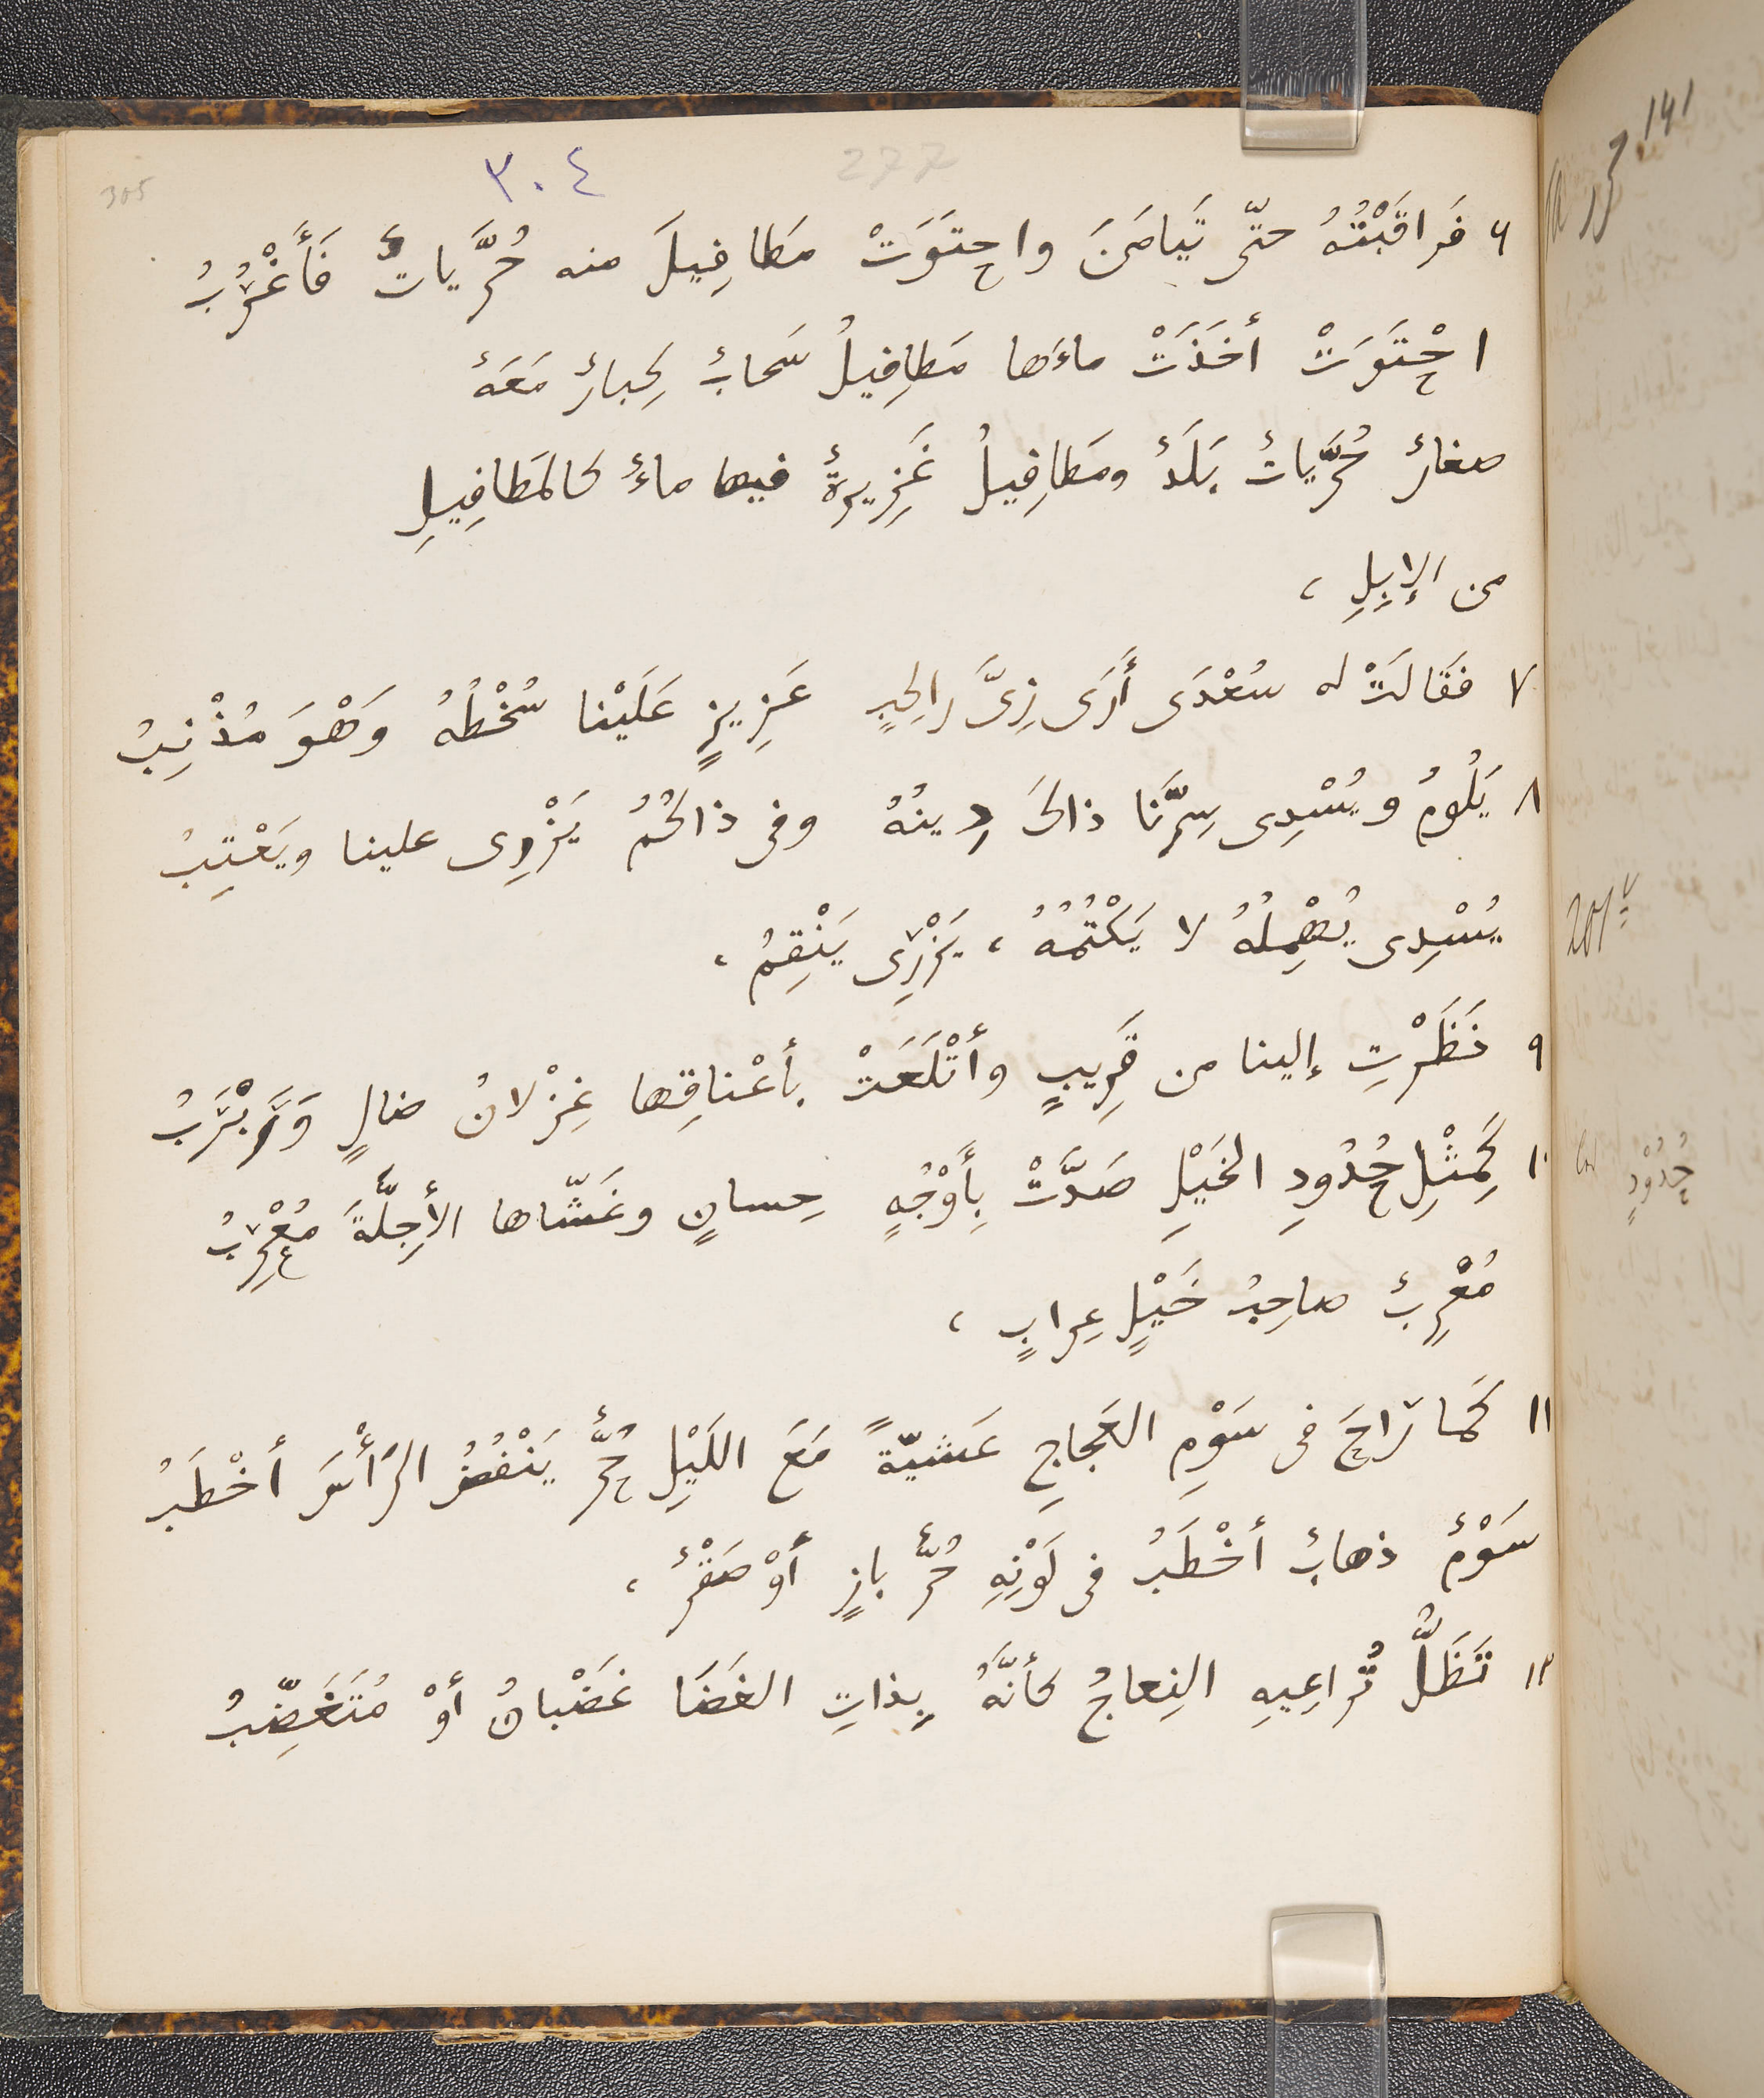 305
٣٠٤
277
٦ فَراقَبْتُهُ حتّى تَيامَنَ واحتَوَتْ مَطافِيلَ منه حُرَّياتٌ فَأَغْرُبُ
احْتَوَتْ أخَذَتْ ماءَها مَطافِيلُ سَحابٌ كِبارٌ مَعَهُ
صغارٌ حُرَّياتٌ بَلَدٌ ومَطافِيلُ غَزِيرةٌ فيها ماءٌ كالمَطافِيلِ
من الإبِلِ ،
٧ فقَالَتْ له سُعْدَى أَرَى زِىَّ راكِبٍ عَزِيزٍ عَلَيْنا سُخْطُهُ وَهْوَ مُذْنِبُ
٨ يَلُومُ ويُسْدِى سِرَّنا ذاكَ دِينُهُ وفى ذاكُمُ يَزْرِى علينا ويَعْتِبُ
يُسْدِى يُهْمِلُهُ لا يَكْتُمُهُ ، يَزْرِى يَنْقِمُ ،
٩ نَظَرْتِ إلينا من قَرِيبٍ وأتْلَعَتْ بأعْناقِها غِزْلانُ ضالٍ وَرَبْرَبُ
١٠ كَمِثْلِ حُدُودِ الخَيْلِ صَدَّتْ بِأَوْجُهٍ حِسانٍ وغَشّاها الأجِلَّةَ مُعْرِبُ
مُعْرِبٌ صاحِبُ خَيْلٍ عِرابٍ ،
١١ كَما راحَ فى سَوْمِ العَجاجِ عَشيّةً مَعَ اللَيْلِ حُرٌّ يَنْفُضُ الرَأْسَ أخْطَبُ
سَوْمٌ ذهابٌ أخْطَبُ فى لَوْنِهِ حُرٌّ بازٍ أوْ صَقْرٌ ،
١٢ تَظَلُّ تُراعِيهِ النِعاجُ كأنَّهُ بِذاتِ الغَضَا غَضْبانُ أوْ مُتَغَضِّبُ
١٤١
201v
حُدُوْدٍ